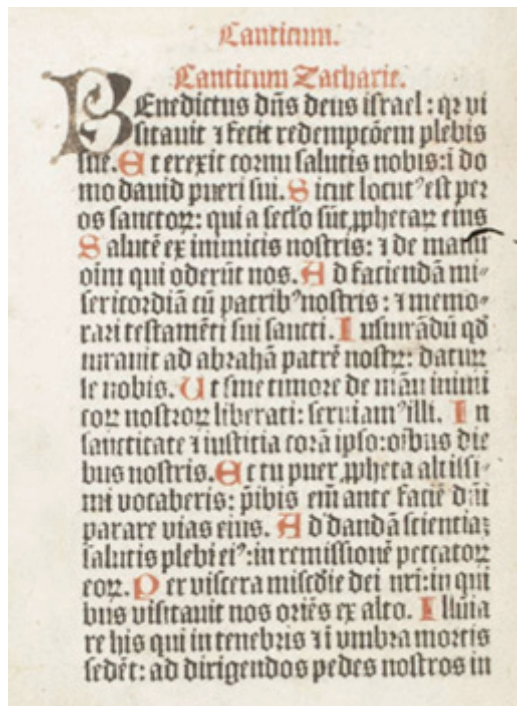 Canticum.
Canticum Zacharie.
BEnedictus dñs deus israel : qꝛ vi
sitauit ⁊ fecit redempcōem plebis
sue. Et erexit cornu salutis nobis: ī do
mo dauid pueri sui. Sicut locutꝰ est per
os sanctoꝝ: qui a secl̓o sūt ꝓphetaꝝ eius
Salutē ex inimicis nostris: ⁊ de manu
oīm qui oderūt nos. Ad faciendā mi⸗
sericordiā cū patribꝰ nostris : ⁊ memo⸗
rari testamēti sui sancti. Iusiurādū qd̄
iurauit ad abrahā patrē nostꝝ: daturū
se nobis. Ut sine timore de manu inimi
coꝝ nostroꝝ liberati: seruiamꝰ illi. In
sanctitate ⁊ iusticia corā ipso: oībus die
bus nostris. Et tu puer ꝓpheta altissi⸗
mi vocaberis: p̄ibis em̄ ante faciē dn̄i
parare vias eius. Ad dandā scientiaꝫ
salutis plebi eiꝰ: in remissionē peccatoꝝ
eoꝝ. Per viscera miscd̓ie dei nr̄i: in qui
bus visitauit nos oriēs ex alto. Illūia
re his qui in tenebris ⁊ ī vmbra mortis
sedēt: ad dirigendos pedes nostros in